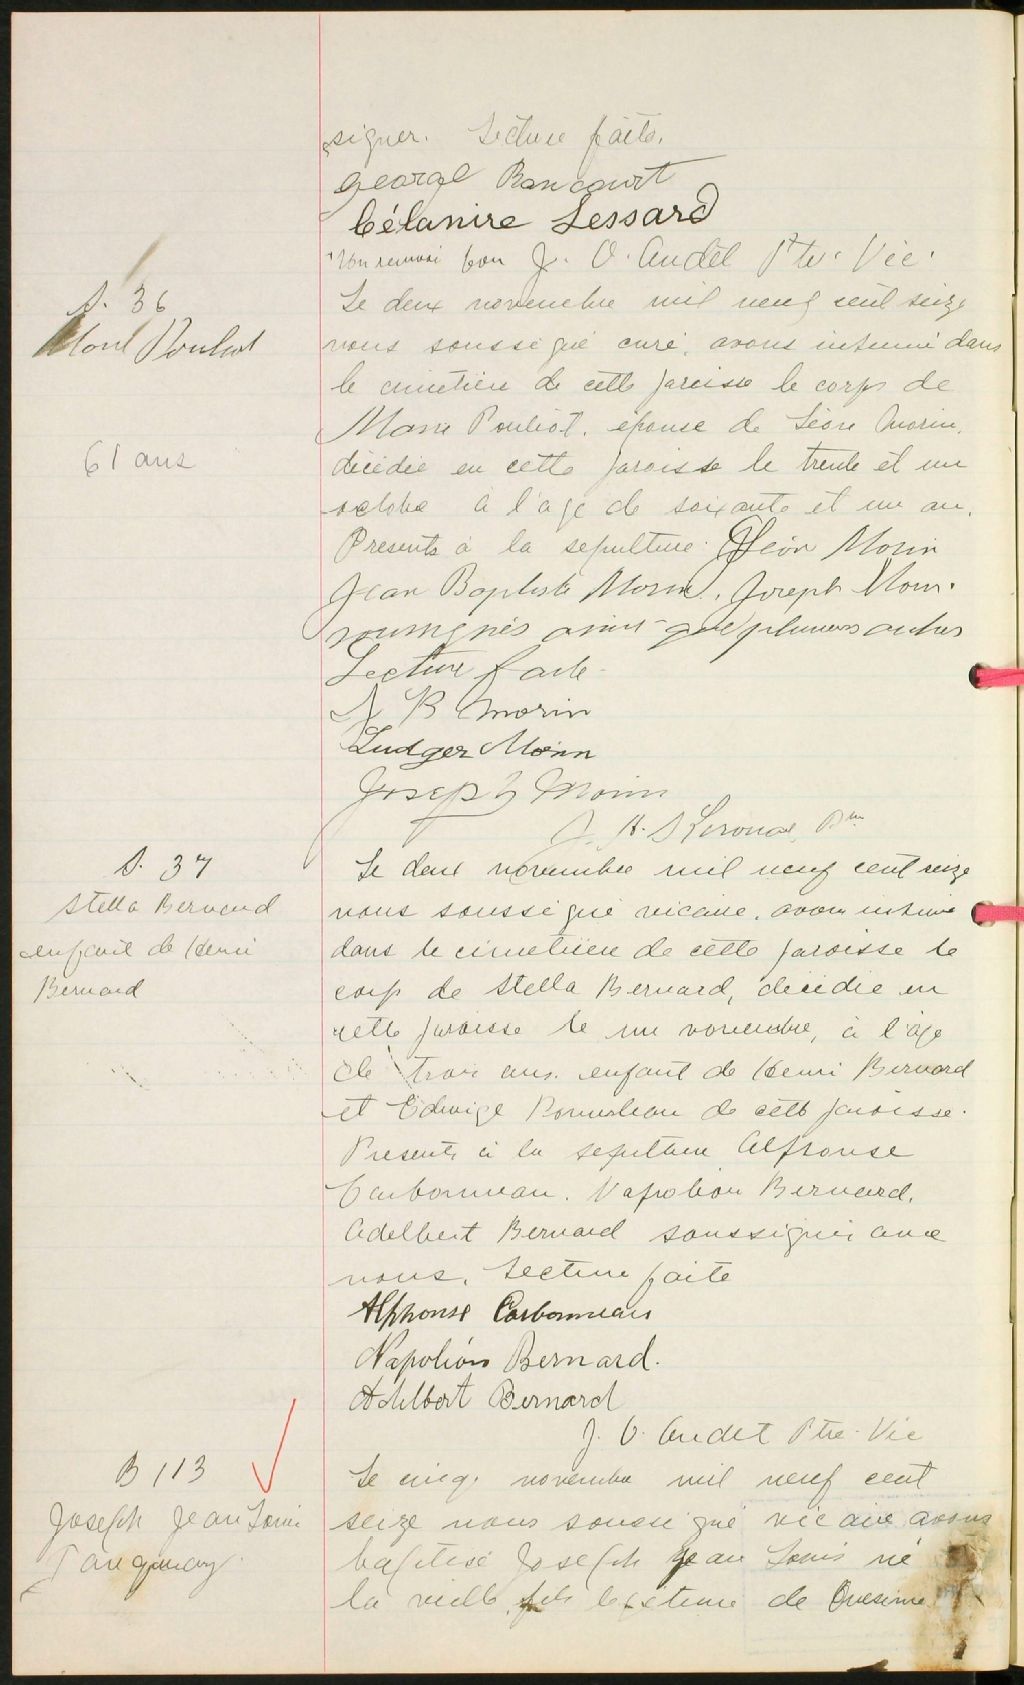 signer. Lecture faite.
George Bancourt
Célanire Lessard
Un renvoi bon J. O. Audet Ptre. Vic.
S. 36
Pouliot
61 ans
Le deux novembre mil neuf cent seize
nous soussigné curé, avons inhumé dans
le cimetière de cette paroisse le corps de
Marie Pouliot, épouse de Léon Morin,
décédée en cette paroisse le trente et un
octobre à l'age de soixante et un an.
Présents à la sépulture. Léon Morin
Jean Baptiste Morin, Joseph Morin
soussignés ainsi que plusieurs autres
Lecture faite
J B Morin
Ludger Morin
Joseph Morin
S. 37
Stella Bernard
enfant de Henri
Bernard
Le deux novembre mil neuf cent seize
nous soussigné vicaire, avons inhumé
dans le cimetière de cette paroisse le
corps de Stella Bernard, décédée en
cette paroisse le un novembre, à l'age
de trois ans. enfant de Henri Bernard
et Edwige Pomerleau de cette paroisse.
Présents à la sépulture Alphonse
Carbonneau. Napoléon Bernard,
Adelbert Bernard soussignés avec
nous. Lecture faite
Alphonse Carbonneau
Napoléon Bernard.
Adelbert Bernard
J. O. Audet Ptre. Vic
B 113
Joseph Jean Louis
Tanguay
Le cinq novembre mil neuf cent
seize nous soussigné vicaire avons
baptisé Joseph Jean Louis né
la veille, fils légitime de Onesime